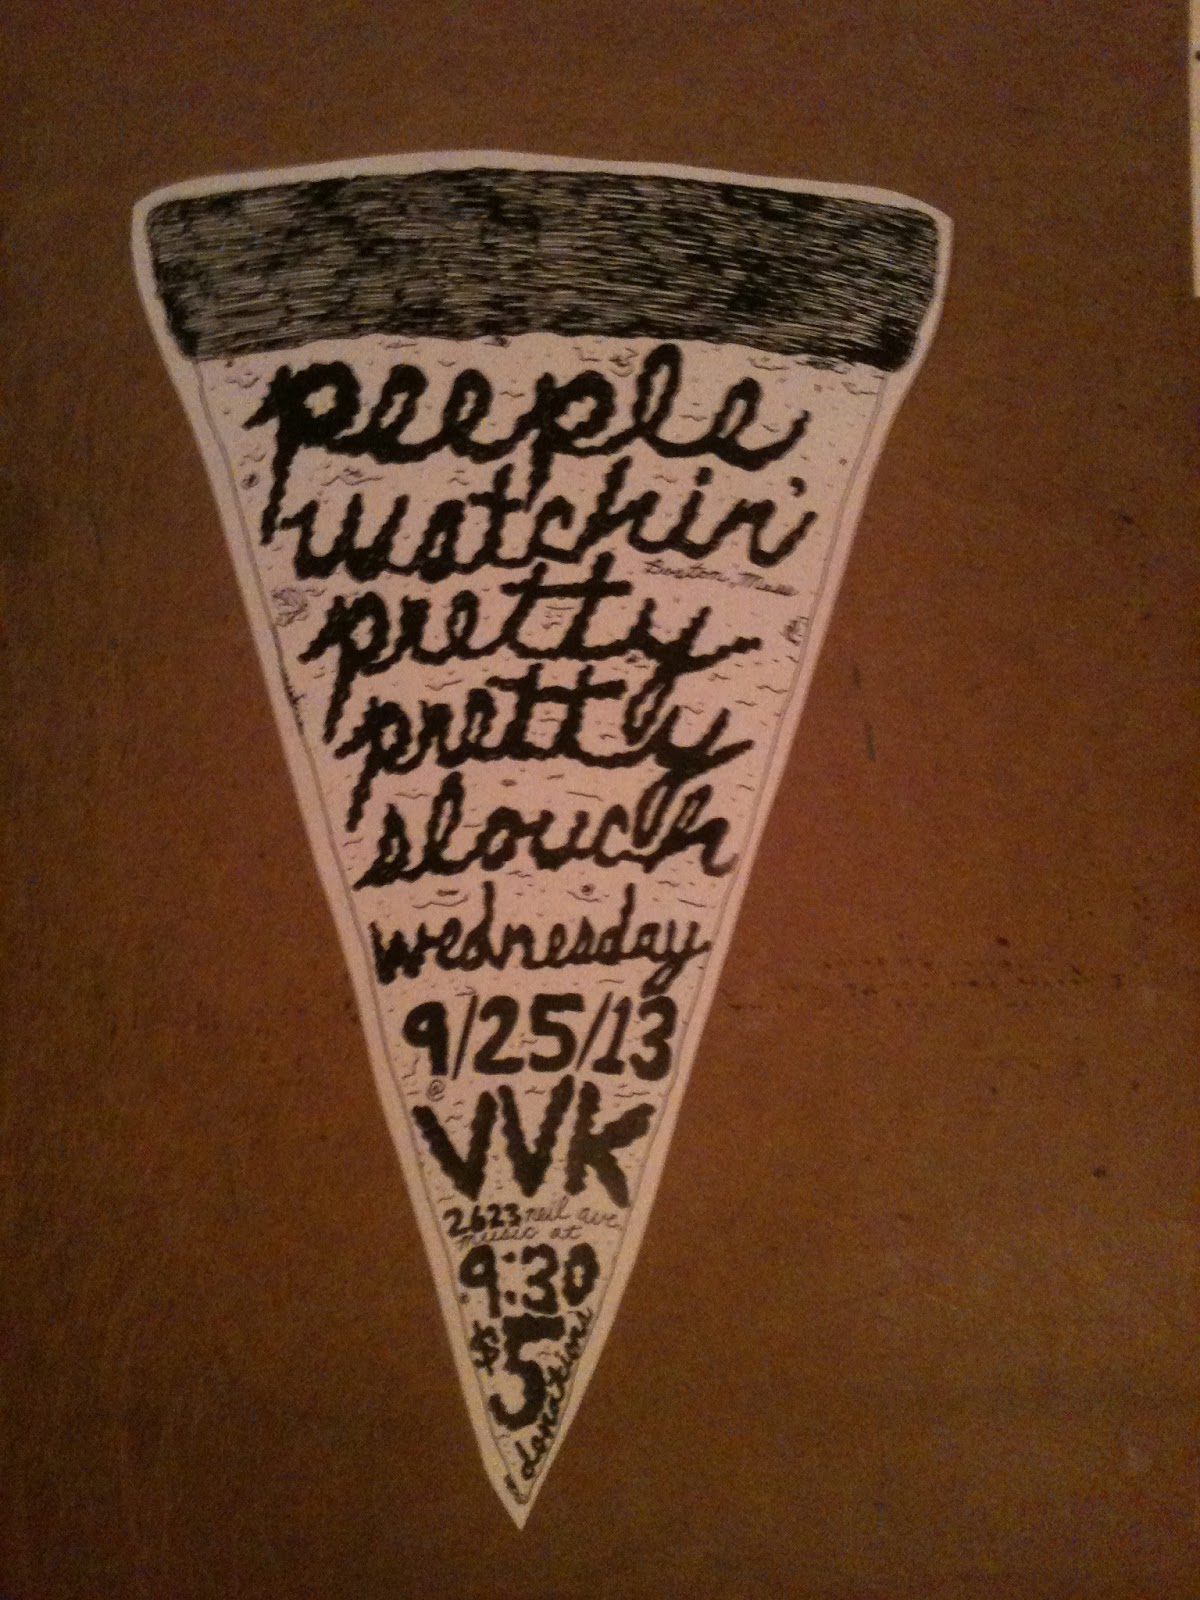 peeple
watchin'
Boston, Mass
pretty
pretty
slouch
wednesday
9/25/13
@
VVK
2623 neil ave.
music at
9:30
$5
donations